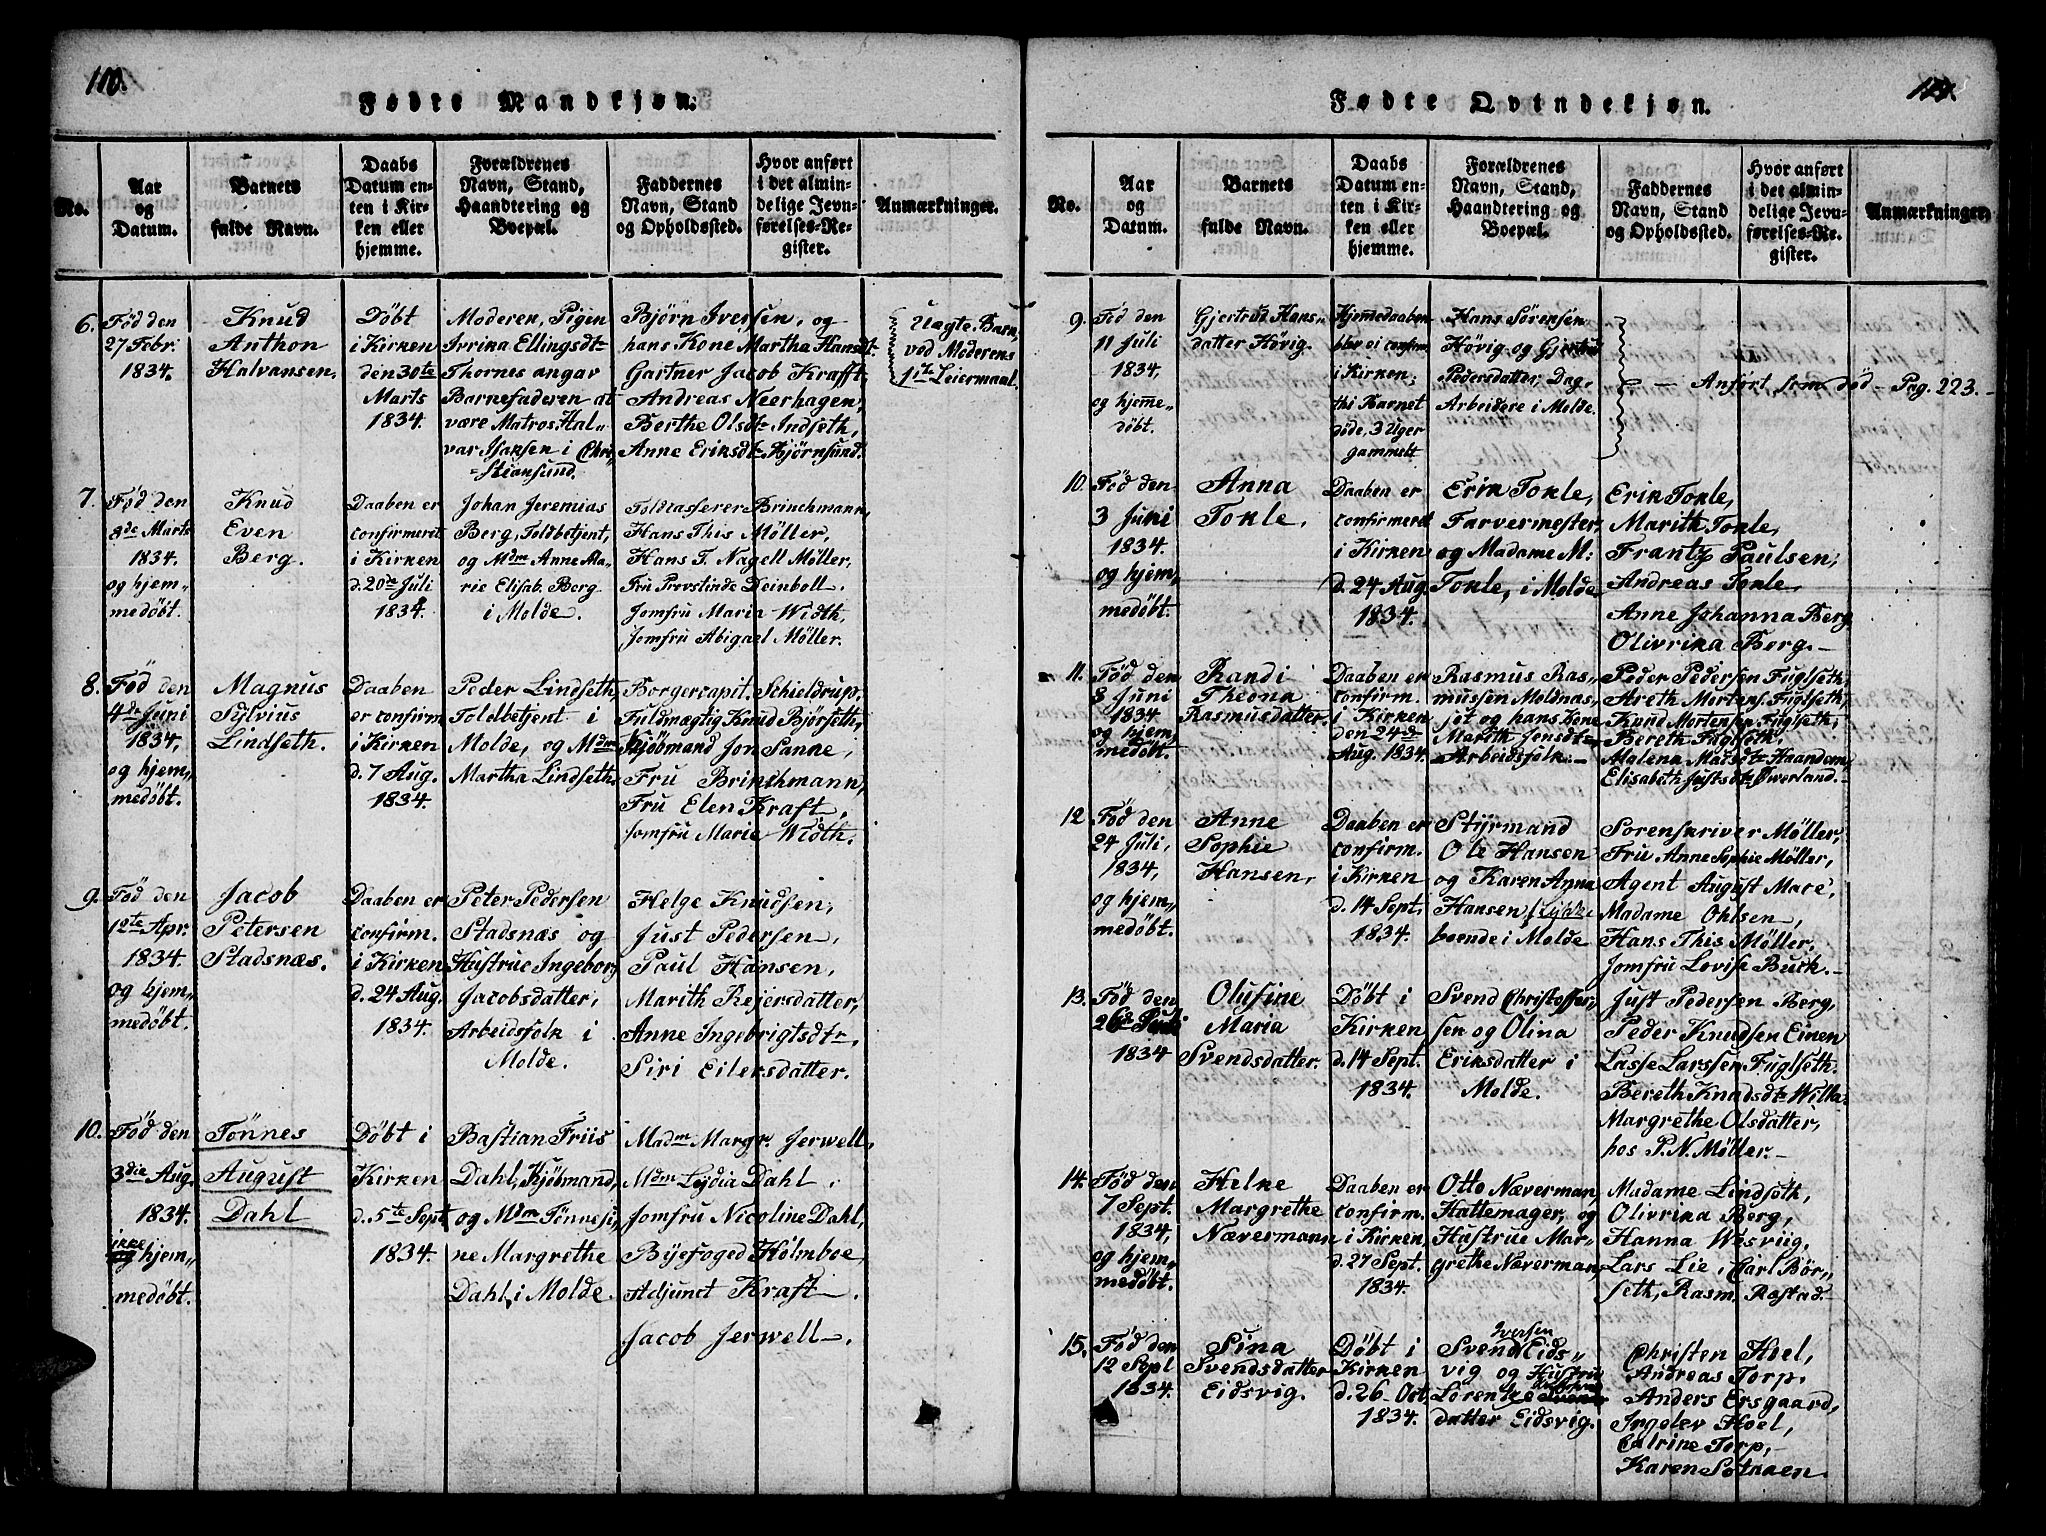 110.
Fødte Mandkjøn.
No.
Aar
og
Datum.
Barnets
fulde Navn.
Daabs
Datum en-
ten i Kir-
ken eller
hjemme.
Forældrenes
Navn, Stand,
Haandtering og
Boepæl.
Faddernes
Navn, Stand
og Opholdssted.
Hvor anført
i det almin-
delige Jevn-
førelses-Re-
gister.
Anmærkninger.
6.
Fød den
27 Febr:
1834.
Knud
Anthon
Halvansen.
Døbt
i Kirken
den 30te
Marts
1834.
Moderen, Pigen
Ivrika Ellingsdtr
Thornes angav
Barnefaderen at
være Matros Hal„
var Isaksen i Chri„
=stiansund.
Bjørn Iversen, og
hans Kone Martha Hansdt.
Gartner Jacob Krafft,
Andreas Neerhagen,
Berthe Olsdtr Indseth,
Anne Eriksdtr Bjørnsund.
Uægte Barn,
ved Moderens
1te Leiermaal.
7.
Fød den
8de Marts
1834.
og hjem„
medøbt.
Knud
Even
Berg.
Daaben er
confirmeret
i Kirken
d. 20te Juli
1834.
Johan Jeremias
Berg, Toldbetjent,
og Mdm Anne Ma„
rie Elisab. Berg
i Molde.
Toldcasserer Brinchmann,
Hans This Møller,
Hans T. Nagell Møller,
Fru Provstinde Deinboll.
Jomfru Maria Width,
Jomfru Abigael Møller.
8.
Fød den
4de Juni
1834,
og hjem„
medøbt.
Magnus
Sylvius
Lindseth.
Daaben
er confirm.
i Kirken
d. 7 Aug.
1834.
Peder Lindseth,
Toldbetjent i
Molde, og Mdm
Martha Lindseth.
Borgercapit. Schieldrup,
Fuldmægtig Knud Bjørseth,
Kjøbmand Jon Sanne,
Fru Brinchmann,
Fru Elen Kraft,
Jomfru Marie Width.
9.
Fød den
12te Apr.
1834.
og hjem„
medøbt.
Jacob
Petersen
Stadsnæs.
Daaben er
confirm.
i Kirken
d. 24 Aug.
1834.
Peter Pedersen
Stadsnæs og
Hustrue Ingeborg
Jacobsdatter,
Arbeidsfolk i
Molde.
Helge Knudsen,
Just Pedersen,
Paul Hansen,
Marith Rejersdatter,
Anne Ingebrigtsdtr,
Siri Eilersdatter.
10.
Fød den
3die Aug.
1834.
ikke
og hjem„
medøbt.
Tønnes
August
Dahl
Døbt i
Kirken
d. 5te Sept
1834.
Bastian Friis
Dahl, Kjøbmand,
og Mdm Tønnesi„
ne Margrethe
Dahl, i Molde.
Madm Margr. Jerwell,
Mdm Lydia Dahl,
Jomfru Nicoline Dahl,
Byefoged Holmboe,
Adjunct Kraft.
Jacob Jerwell.
Fødte Qvindekjøn.
No.
Aar
og
Datum.
Barnets
fulde Navn.
Daabs
Datum en-
ten i Kir-
ken eller
hjemme.
Forældrenes
Navn, Stand,
Haandtering og
Boepæl.
Faddernes
Navn, Stand
og Opholdssted.
Hvor anført
i det almin-
delige Jevn-
førelses-Re-
gister.
Anmærkninger.
9.
Fød den
11 Juli
1834,
og hjeme„
døbt.
Gjertrud Hans„
datter Høvig.
Hjemmedaaben
blev ei confirm.
i Kirken,
thi Barnet
døde, 3 Uger
gammelt
Hans Sørensen
Høvig og Gjertrud
Pedersdatter, Dag„
Arbeidere i Molde.
Anført som død — Pag. 223.
10.
Fød den
3 Juni
1834.
og hjem„
medøbt.
Anna
Tokle.
Daaben er
confirmeret
i Kirken
d. 24 Aug
1834.
Erik Tokle,
Farvermester,
og Madame M:
Tokle, i Molde.
Erik Tokle,
Marith Tokle,
Frantz Paulsen,
Andreas Tokle,
Anne Johanna Berg
Olivrika Berg.
11.
Fød den
8 Juni
1834
og hjem„
medøbt.
Randi
Theona
Rasmusdatter.
Daaben er
confirm.
i Kirken
den 24de
Aug. 1834.
Rasmus Ras„
mussen Moldnæs„
jet og hans kone
Marith Jensdtr,
Arbeidsfolk.
Peder Pedersen Fuglseth,
Areth Mortens. Fuglseth,
Knud Mortensen Fuglseth,
Bereth Fuglseth,
Malena Matsdtr Haandem,
Elisabeth Justsdtr Øverland.
12
Fød den
24 Juli,
1834,
og hjem„
medøbt.
Anne
Sophie
Hansen,
Daaben er
confirm.
i Kirken
d. 14 Sept.
1834.
Styrmand
Ole Hansen
og Karen Anna
Hansen
boende i Molde
Sorenskriver Møller,
Fru Anne Sophie Møller,
Agent August Mare,
Madame Ohlsen,
Hans This Møller,
Jomfru Lovise Buck.
13.
Fød den
1834
Olufine
Maria
Svendsdatter.
Døbt i
Kirken
d. 14 Sept.
1834.
Svend Christoffer„
sen og Olina
Eriksdatter i
Molde.
Just Pedersen Berg,
Peder Knudsen Einen
Lasse Larssen Fuglseth.
Bereth Knudsdtr Wilka
Margrethe Olsdatter,
hos P. N. Møller.
14.
Fød den
7 Sept.
1834,
og hjem„
medøbt.
Helke
Margrethe
Nævermann
Daaben er
confirm.
i Kirken,
d. 27 Sept.
1834.
Otto Næverman,
Hattemager, og
Hustrue Mar„
grethe Næverman,
Madame Lindseth,
Olivrika Berg,
Hanna Wesviig,
Lars Lie, Carl Bør„
seth, Rasm. Røstad.
15.
Fød den
12 Sept
1834.
Sina
Svendsdatter
Eidsvig.
Døbt i
Kirken
d. 26. Oct.
1834.
Iversen
Svend Eids„
vig og Hustru
Lorentze
datter Eidsvig.
Christen Hoel,
Andreas Torp,
Anders Ersgaard,
Ingelev Hoel,
Catrine Torp,
Karen Sotnaen.